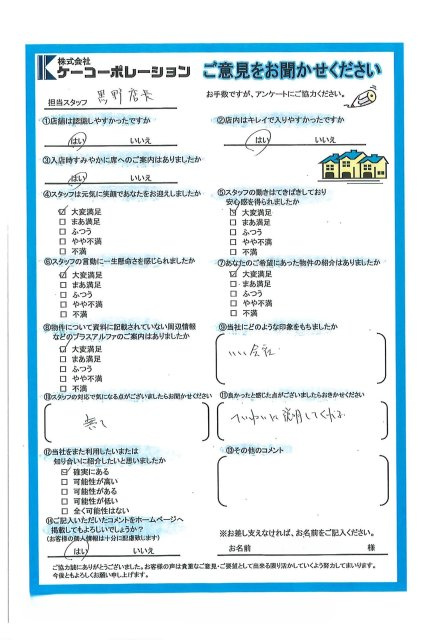 株式会社
ケーコーポレーション
ご意見をお聞かせください
担当スタッフ 黒野店長
お手数ですが、アンケートにご協力ください。
①店舗は認識しやすかったですか
はい いいえ
②店内はキレイで入りやすかったですか
はい いいえ
③入店時すみやかに席へのご案内はありましたか
はい いいえ
④スタッフは元気に笑顔であなたをお迎えしましたか
大変満足
まあ満足
ふつう
やや不満
不満
⑤スタッフの動きはてきぱきしており
安心感を得られましたか
大変満足
まあ満足
ふつう
やや不満
不満
⑥スタッフの言動に一生懸命さを感じられましたか
大変満足
まあ満足
ふつう
やや不満
不満
⑦あなたのご希望にあった物件の紹介はありましたか
大変満足
まあ満足
ふつう
やや不満
不満
⑧物件について資料に記載されていない周辺情報
などのプラスアルファのご案内はありましたか
大変満足
まあ満足
ふつう
やや不満
不満
⑨当社にどのような印象をもちましたか
いい会社
⑩スタッフの対応で気になる点がございましたらお聞かせください
無し
⑪良かったと感じた点がございましたらおきかせください
ていねいに説明してくれた
⑫当社をまた利用したいまたは
知り合いに紹介したいと思いましたか
確実にある
可能性が高い
可能性がある
可能性が低い
全く可能性はない
⑬その他のコメント
⑭ご記入いただいたコメントをホームページへ
掲載してもよろしいでしょうか?
(お客様の個人情報は十分に配慮致します)
はい いいえ
※お差し支えなければ、お名前をご記入ください。
お名前 様
ご協力誠にありがとうございました。お客様の声は貴重なご意見・ご要望として出来る限り活かしていくよう努力してまいります。
今後ともよろしくお願い申し上げます。